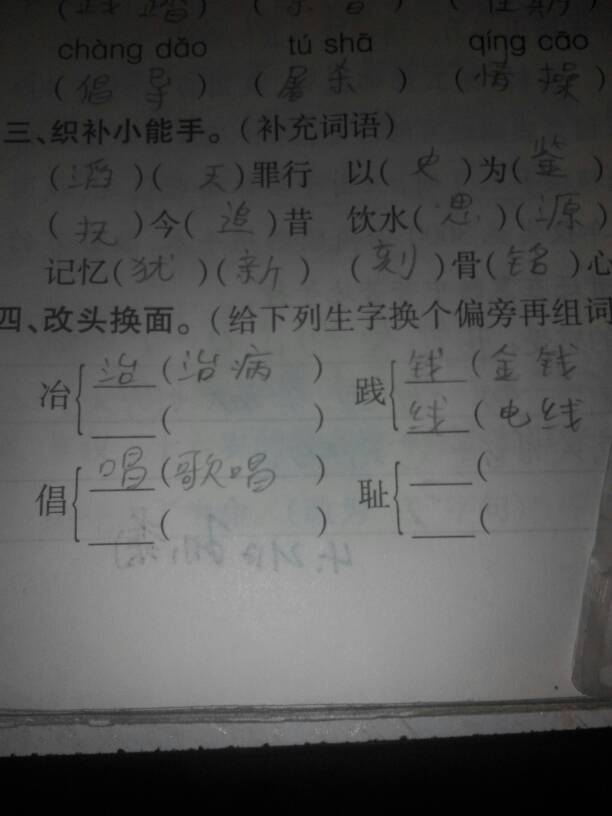 chàng dǎo tú shā qíng cāo
(倡导) (屠杀) (情操)
三、织补小能手。(补充词语)
(滔)(天)罪行 以(史)为(鉴)
(抚)今(追)昔 饮水(思)(源)
记忆(犹)(新) (刻)骨(铭)心
四、改头换面。(给下列生字换个偏旁再组词
冶 治(治病) 践 钱(金钱
( ) 线(电线
倡 唱(歌唱) 耻 (
( ) (